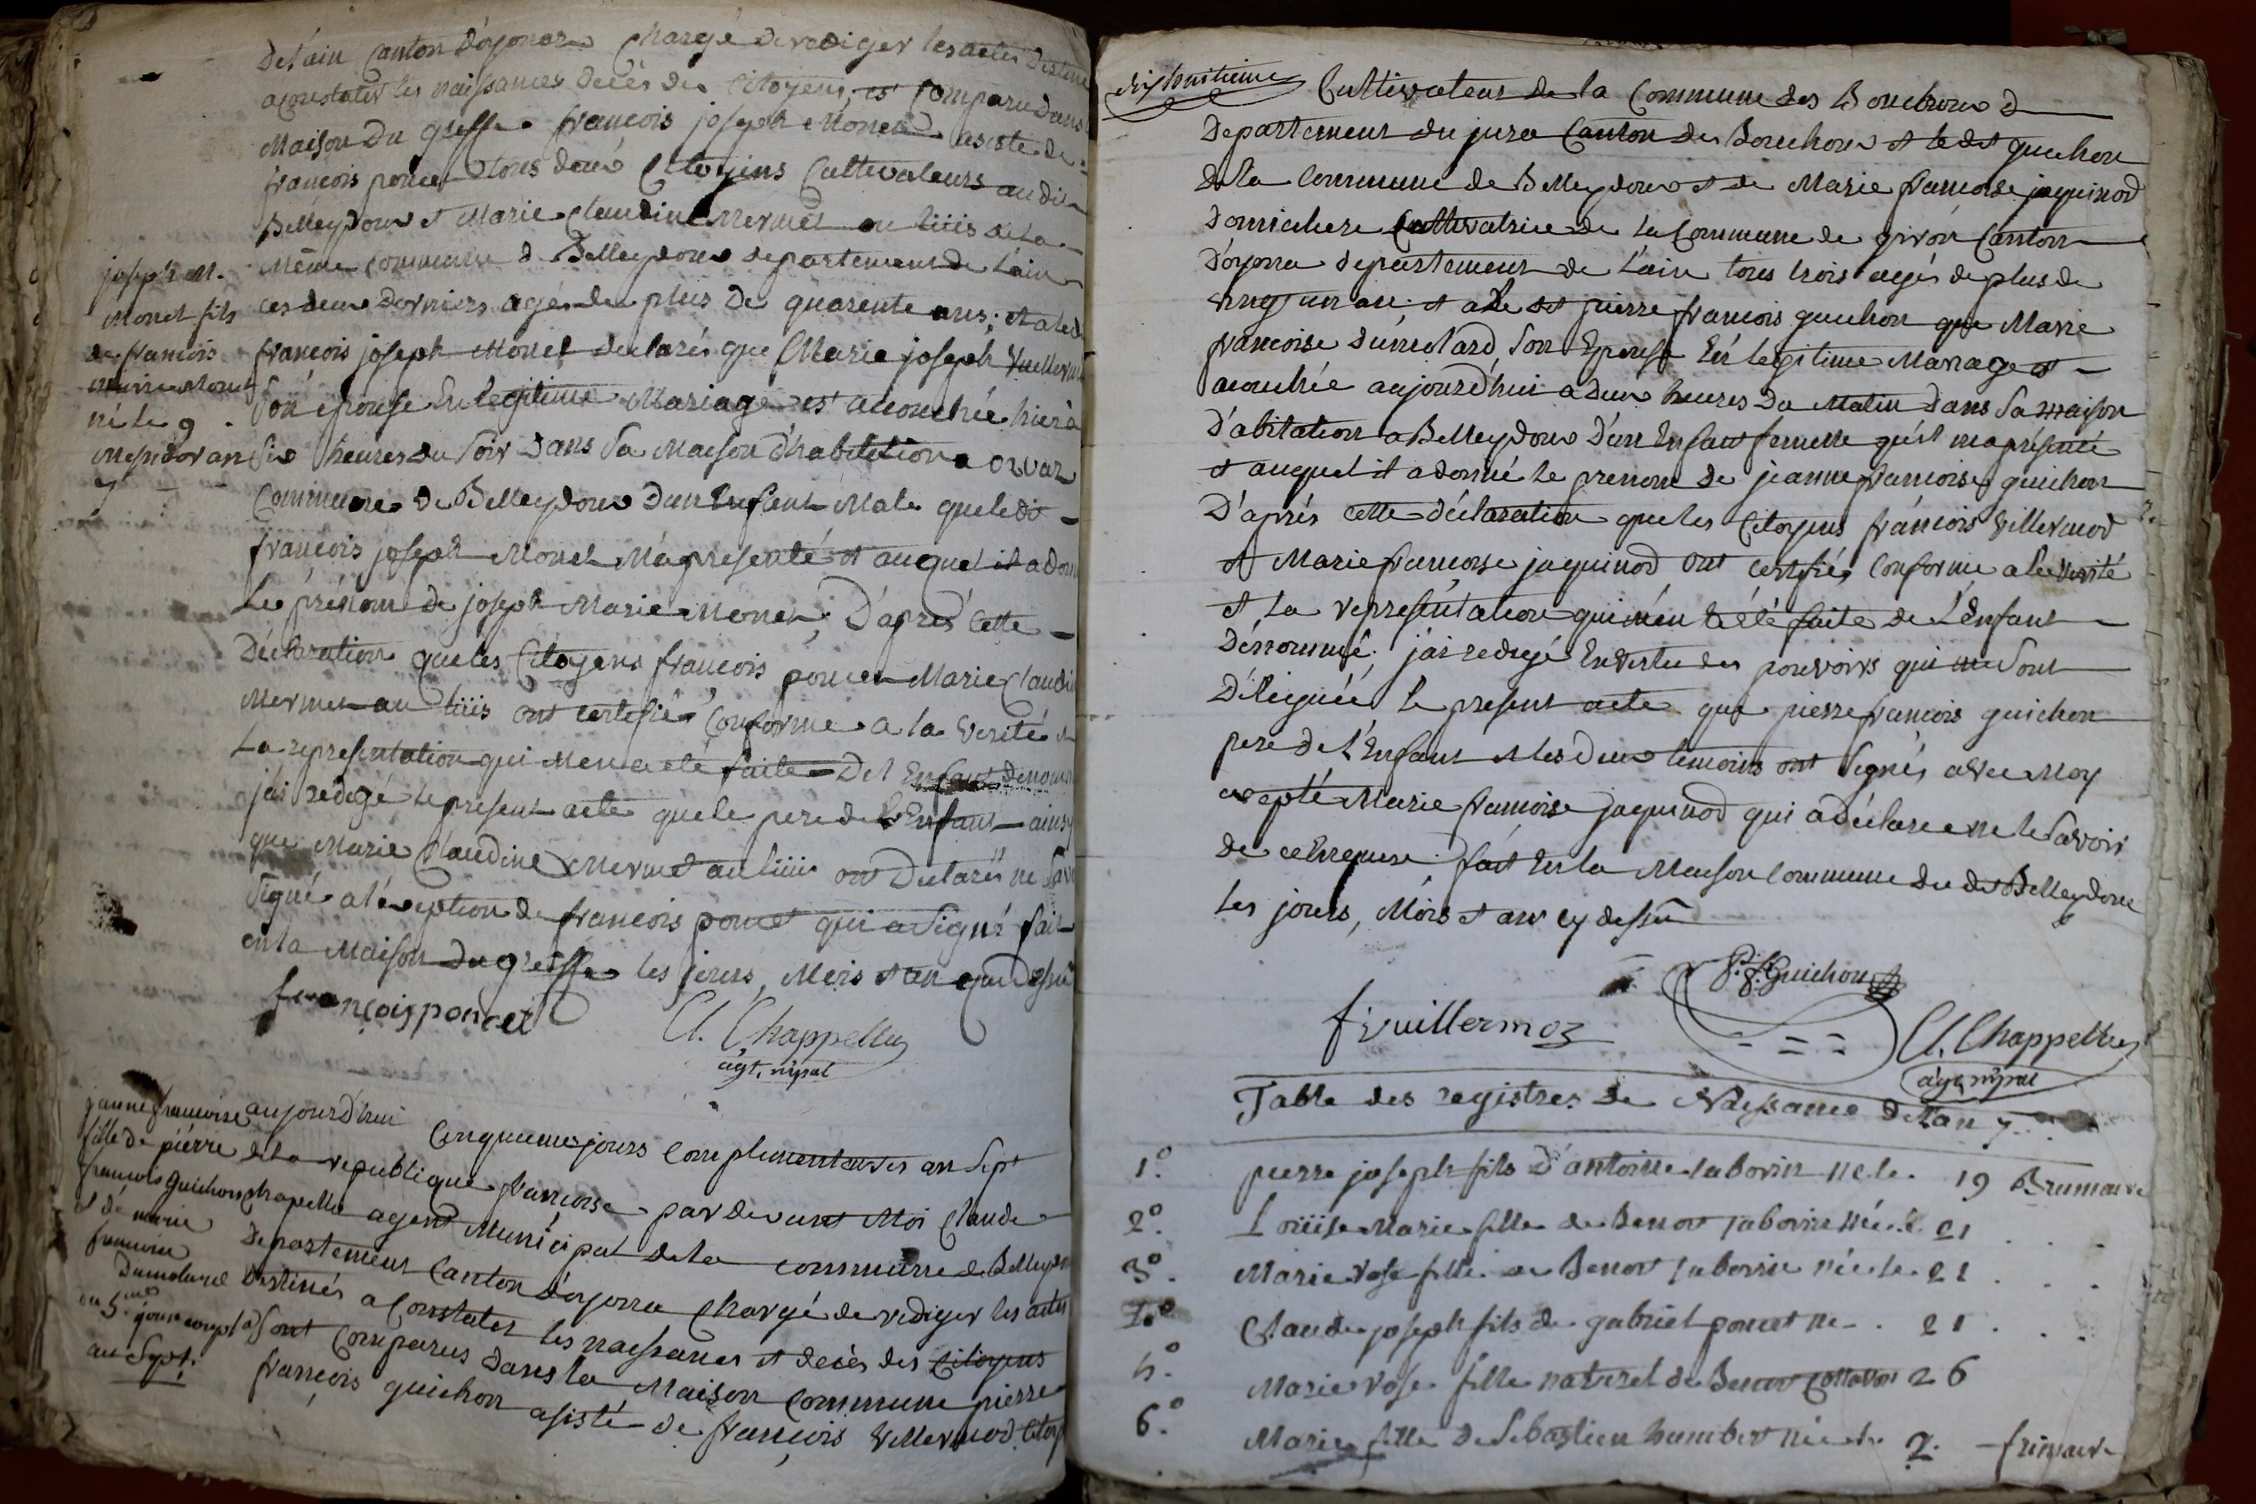 de l'ain Canton d'oyonas Chargé de rediger les actes destiné
a Constater les naissances deces des Citoyens, est Comparu dans
Maison du greffe françois joseph Monet asisté de
françois poncet tous deux Citoyens Cultivateurs audit
Belleydoux et Marie Claudine Mermet au de la
Même commune de Belleydoux departement de Lain
ces deux Dorniers agés de plus de quarente ans; et a led
françois joseph Monet declarés que Marie joseph Vuillerm
Son epouse En legitime Mariage est acouchée hier a
Six heures du Soir dans Sa Maison d'habitation a orvaz
Commune de Belleydoux d'un Enfant Male que ledit
françois joseph Monet M'a presenté et auquel it a don
Le prénom de joseph Marie Monet, D'aprés Cette
Déclaration que les Citoyens françois poncet Marie Claudi
Mermet au ont certifié Conforme a la Verité et
La representation qui Men a eté faite De l'Enfant denom
j'ai redigé le present acte que le pere de l'Enfant ainsy
que Marie Claudine Mermet au ont Declarés ne Sav
Signé a l'éxeption de françois poncet qui a Signé fait
en la Maison du greffe les jours, Mois et an que Dessu
joseph M.
Monet fils
de francois
Marie Monet
né le 9
Mesidor an
7
françois poncet
Cl. Chappelluz
agt. mpal
janne francoise
fille de piérre
francois guichon
et de marie
francoise
Dumolard
du 5.me jour compl.
an Sept.
aujourd'hui Cinquieme jours Complimentaires an Sept
de la republique francoise par devant Moi Claude
Chapelle agent Municipal de la commune de Belleydou
Departement Canton d'oyonna Chargé de rediger les actes
Destinés a Constater les naissances et decès des Citoyens
Sont Comparus dans la Maison Commune pierre
françois guichon asisté de françois Villermod Citoy
dixhuitieme
Cultivateur de la Commune des Bouchoux D
Departement du jura Canton des Bouchoux et ledt guichon
de la Commune de Belleydoux et de Marie francoise jaquinod
Domiciliere Cultivatrice de la Commune de givon Canton
D'oyonna departement de L'ain tous trois agés de plus de
vingt un an; et a le dt pierre francois guichon que Marie
francoise dumolard Son Epouse En legitime Mariage et
acouchée aujourd'hui a deux heures du Matin dans Sa maison
D'abitation a Belleydoux D'un Enfant femelle qu'il m'a présenté
et auquel it a donné le prenom de jeanne francoise guichon
D'aprés cette déclaration que les Citoyens françois Villermod
et Marie francoise jaquinod ont certifiés Conforme a la verité
et La representation qui m'en a été faite de L'Enfant
Dénommé; j'ai redigé En Vertu des pouvoirs qui me Sont
Déleguée le present acte que pierre francois guichon
pere de L'Enfant et les Deux temoins ont Signés avec Moy
exepté Marie francoise jaquinod qui a déclaré ne le Savoir
de ce Enquise; fait En la Maison Commune du dt Belleydoux
Les jours, Mois et an cy dessu
P. f. Guichon
f Vuillermoz
Cl. Chappelluz
agt mpal
Table des registres de Naissance de l'an 7
1.o pierre joseph fils d'antoine taborin né le 19 Brumaire
2.o Loüise Marie fille de Benoit taborin née le 21
3.o Marie rose fille de Benoit taborin née le 21
4.o Claude joseph fils de gabriel poncet né 21
5.o Marie rose fille naturel de Benoit 26
6.o Marie fille de Sebastien humbert née le 2 frimaire